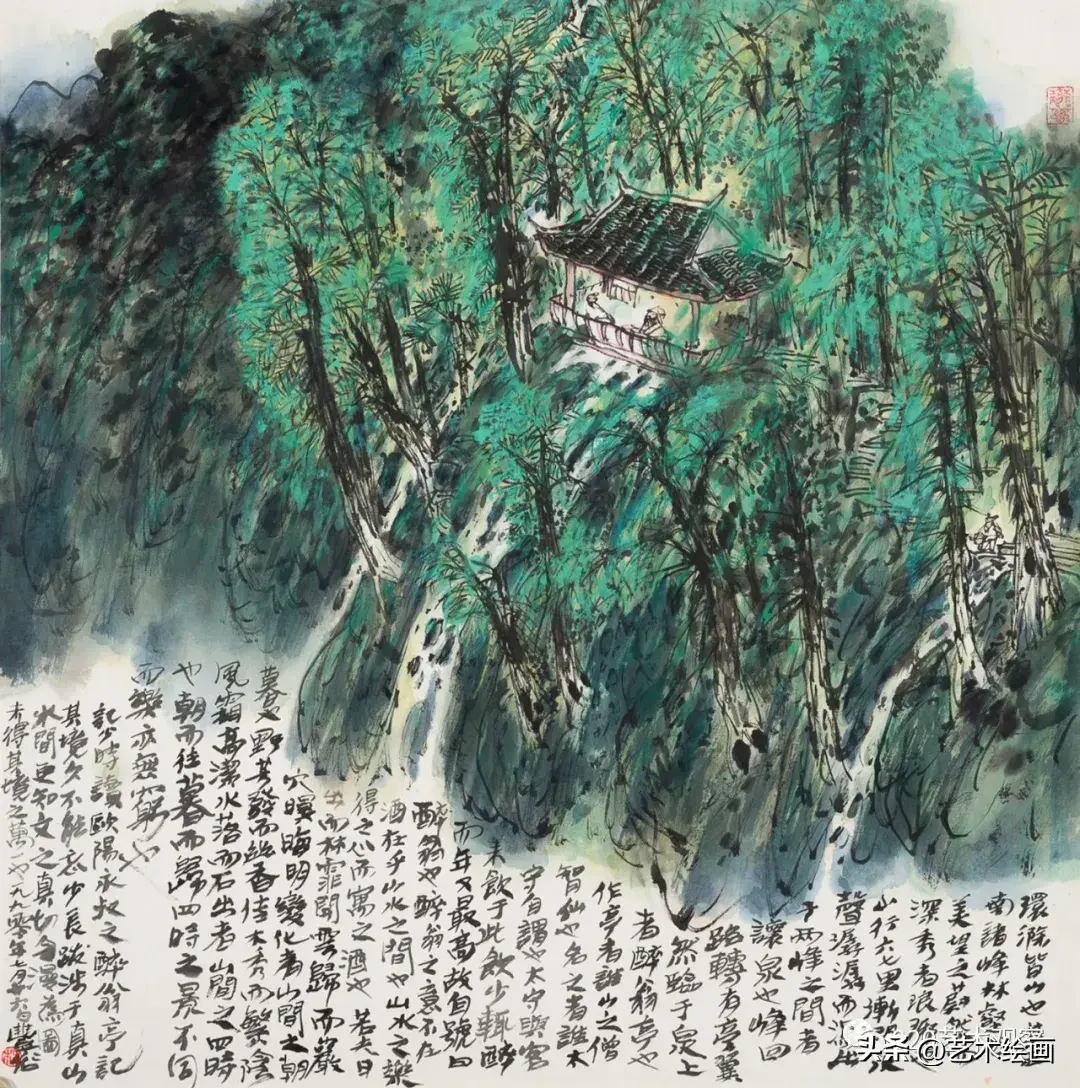 環滁皆山也
南諸峰林壑
美望之蔚然
深秀者琅
山行六七里漸
聲潺潺而瀉出
于兩峰之間者
讓泉也峰回
路轉有亭翼
然臨于泉上
者醉翁亭也
作亭者誰山之僧
智仙也名之者誰太
守自謂也太守與客
來飲于此飲少輒醉
而年又最高故自號曰
醉翁也醉翁之意不在
酒在乎山水之間也山水之樂
得之心而寓之酒也 若夫日
出而林霏開雲歸而巖
穴暝晦明變化者山間之朝
暮也野芳發而幽香佳木秀而繁陰
風霜高潔水落而石出者山間之四時
也朝而往暮而歸四時之景不同
而樂亦無窮也
記少時讀歐陽永叔之醉翁亭記
其境久不能忘少長跋涉于真山
水間更知文之真切 漫為圖
未得其境之萬一也一九九零年七月 作
头条 @艺术绘画